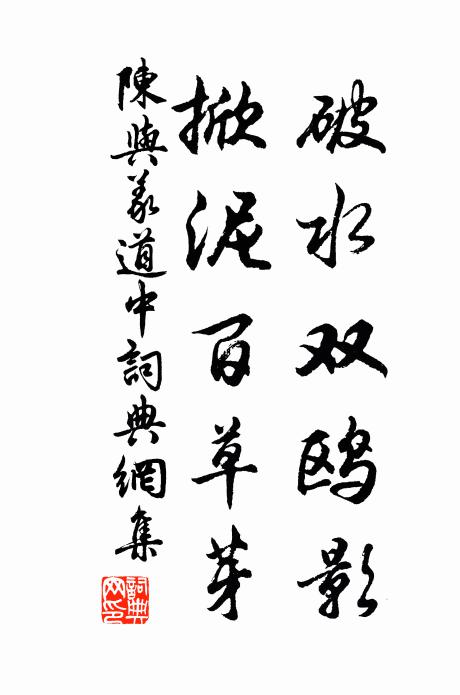 破水双鸥影
掀泥百草芽
陳與義道中詞典網集
詞典網印